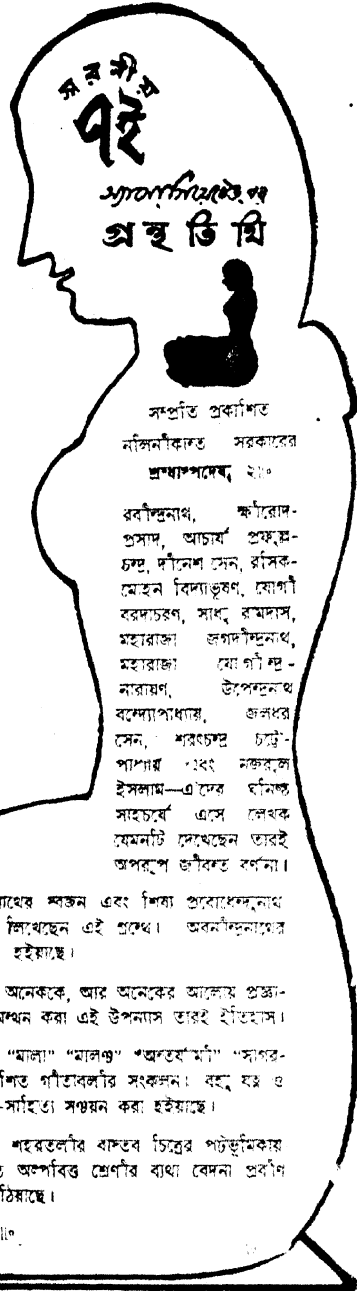 স্মরণীয়
৭ই
অ্যাসোসিয়েটেড-এর
গ্রন্থতিথি
সম্প্রতি প্রকাশিত
নলিনীকান্ত সরকারের
শ্রদ্ধাস্পদেষু ২॥০
রবীন্দ্রনাথ, ক্ষীরোদ-
প্রসাদ, আচার্য প্রফুল্ল-
চন্দ্র, দীনেশ সেন, রসিক-
মোহন বিদ্যাভূষণ, যোগী
বরদাচরণ, সাধু রামদাস,
মহারাজা জগদীন্দ্রনাথ,
মহারাজা যোগীন্দ্র-
নারায়ণ, উপেন্দ্রনাথ
বন্দ্যোপাধ্যায়, জলধর
সেন, শরৎচন্দ্র চট্টো-
পাধ্যায় এবং নজরুল
ইসলাম—এঁদের ঘনিষ্ঠ
সাহচর্যে এসে লেখক
যেমনটি দেখেছেন তারই
অপরূপ জীবন্ত বর্ণনা।
নাথের স্বজন এবং শিষ্য প্রবোধেন্দুনাথ
লিখেছেন এই গ্রন্থে। অবনীন্দ্রনাথের
হইয়াছে।
অনেককে, আর অনেকের আলোয় প্রজ্ঞা-
মন্থন করা এই উপন্যাস তারই ইতিহাস।
“মালা” “মালঞ্চ” “অন্তর্যামী” “সাগর-
শিত গীতাবলীর সংকলন। বহু যত্ন ও
-সাহিত্য সঞ্চয়ন করা হইয়াছে।
শহরতলীর বাস্তব চিত্রের পটভূমিকায়
অল্পবিত্ত শ্রেণীর ব্যথা বেদনা
ঠিয়াছে।
॥০